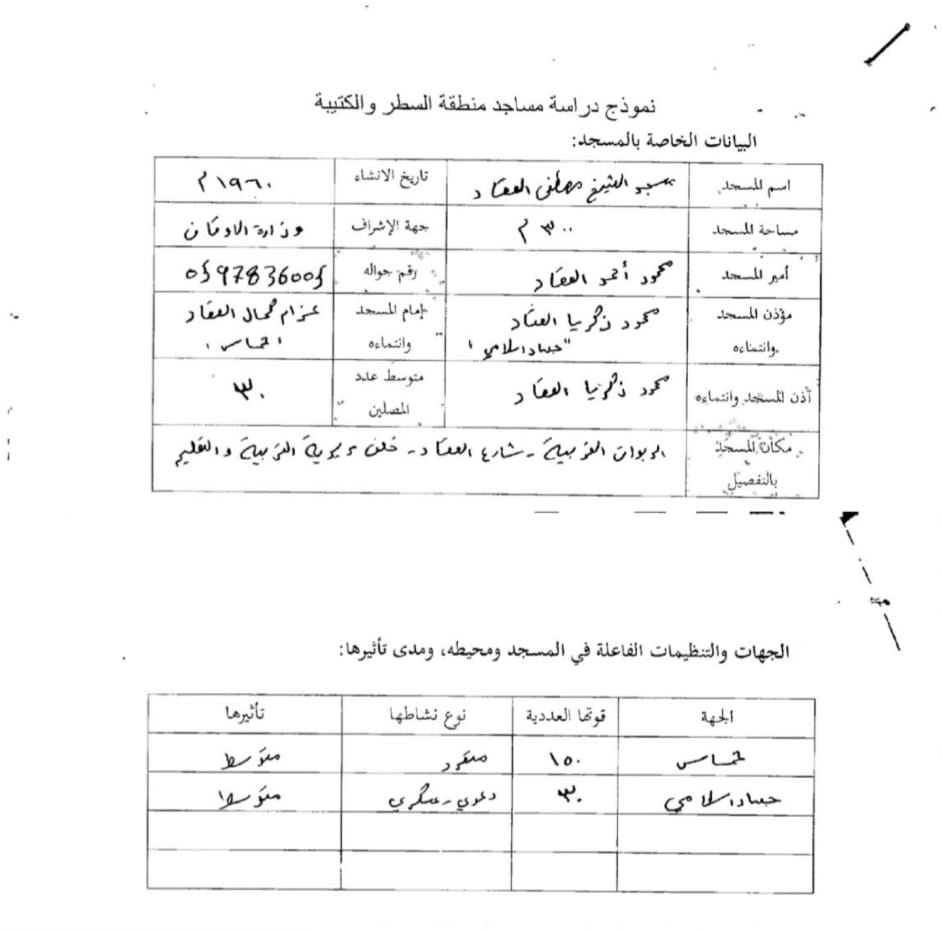 نموذج دراسة مساجد منطقة السطر والكتيبة
البيانات الخاصة بالمسجد:
اسم المسجد مسجد الشيخ مصطفى العقاد تاريخ الانشاء ١٩٦٠م
مساحة المسجد ٣٠٠م جهة الإشراف وزارة الاوقاف
أمير المسجد محمود أحمد العقاد رقم جواله
مؤذن المسجد وانتماءه محمود زكريا العقاد "جهاد اسلامي" إمام المسجد وانتماءه عزام كمال العقاد "حماس"
آذن المسجد وانتماءه محمود زكريا العقاد متوسط عدد المصلين ٣٠
مكان المسجد بالتفصيل الغربية - شارع العقاد - خلف مديرية التربية والتعليم
الجهات والتنظيمات الفاعلة في المسجد ومحيطه، ومدى تأثيرها:
الجهة قوتها العددية نوع نشاطها تأثيرها
حماس ١٥٠ متوسط
جهاد اسلامي ٣٠ دعوي - عسكري متوسط